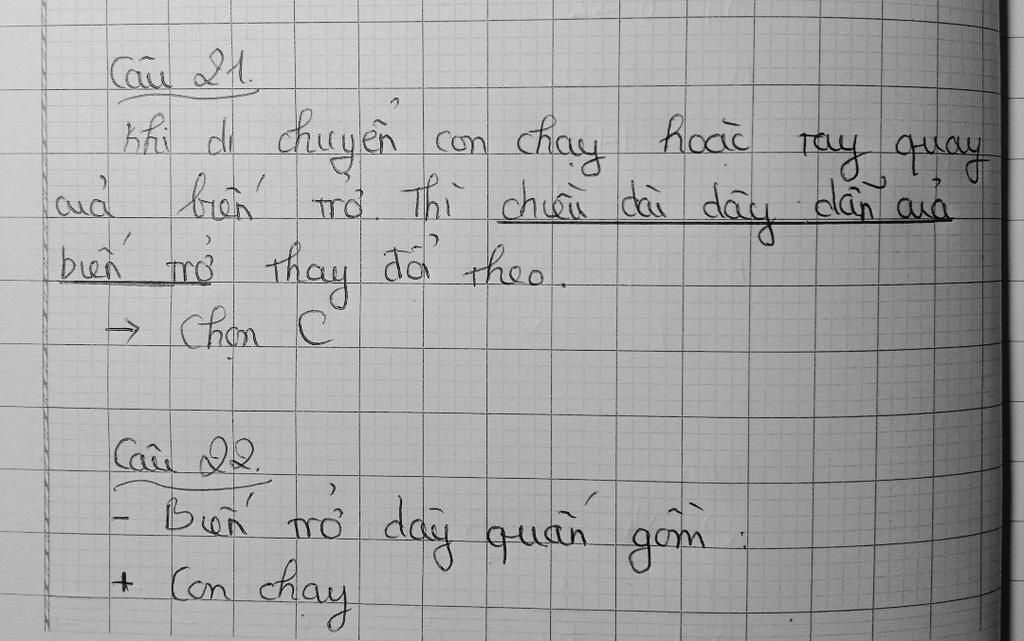 Câu 21.
Khi di chuyển con chạy hoặc tay quay
của biến trở. Thì chiều dài dây dẫn của
biến trở thay đổi theo.
→ Chọn C
Câu 22.
- Biến trở dây quấn gồm :
+ Con chạy